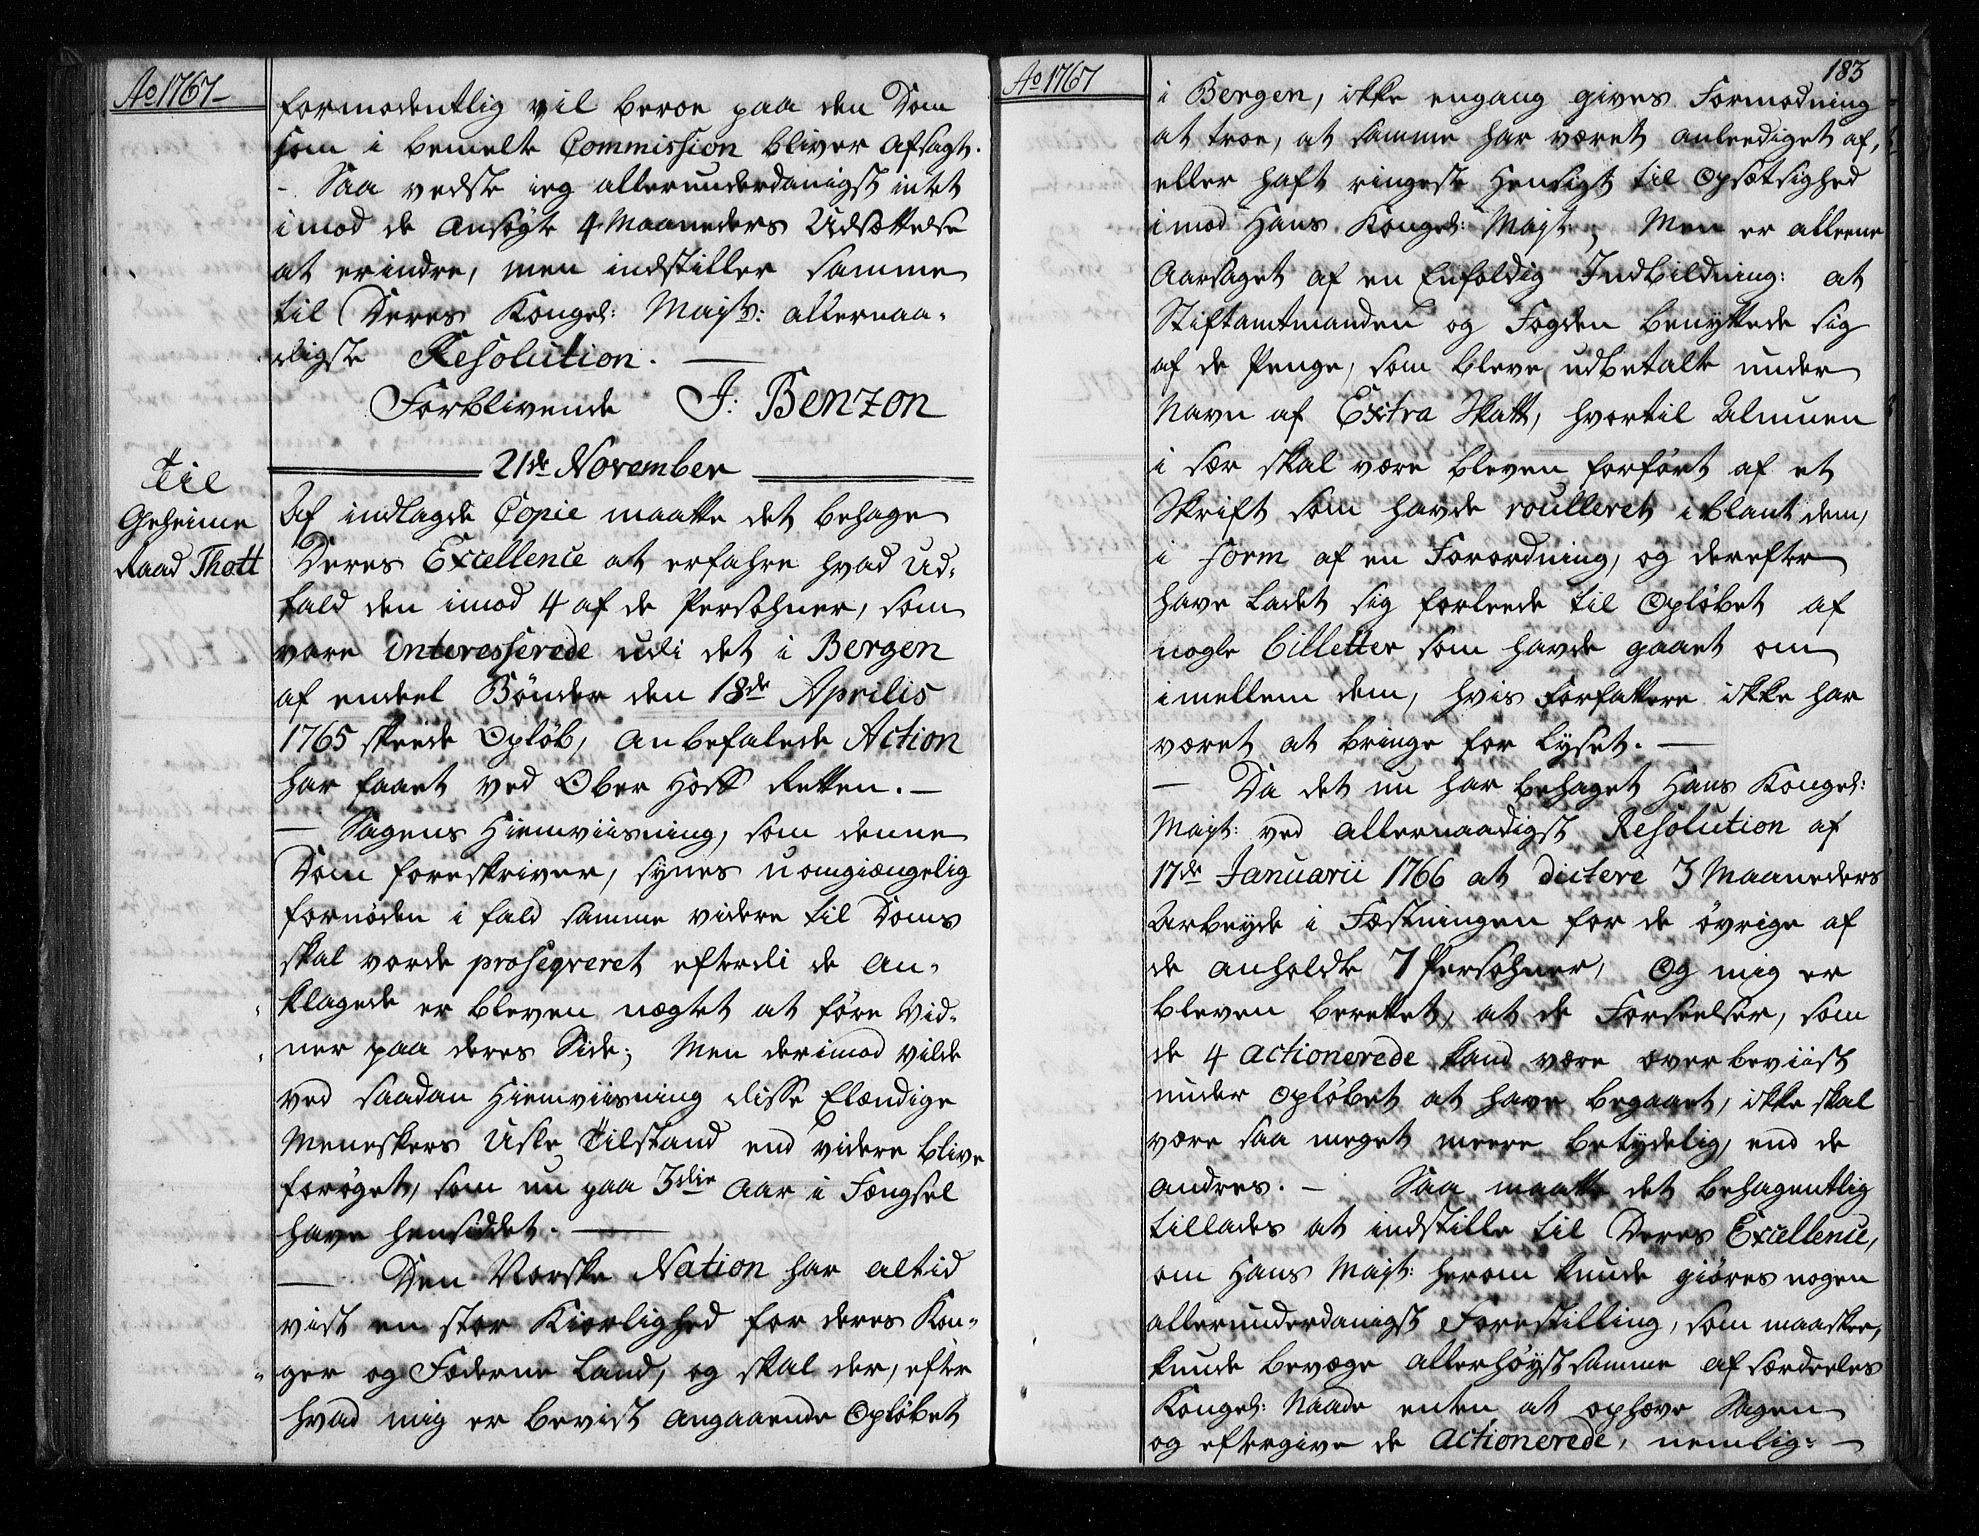 Ao 1767-
formodentlig vil beroe paa den Dom
som i bemelte Commission bliver afsagt.
- Saa vedste ieg allerunderdanigst intet
imod de ansøgte 4 Maaneders Udsættelse
at erindre, men indstiller samme
til Deres Kongel: Majts: allernaa-
digste Resolution. —
Forblivende J: Benzon
21de November
Til
Geheime
Raad Thott
Af indlagde Copie maatte det behage
Deres Excellence at erfahre hvad Ud-
fald den imod 4 af de Persohner, som
vare interesserede udi det i Bergen
af endeel Bønder den 18de Aprilis
1765 skeede Opløb, anbefalede Action
har faaet ved Ober Hoff Retten. —
— Sagens Hiemviisning, som denne
Dom foreskriver, synes uomgiængelig
fornøden i fald samme videre til Doms
skal vorde proseqveret efterdi de an-
klagede er bleven nægtet at føre Vid-
ner paa deres Side; Men derimod vilde
ved saadan Hiemviisning disse Elændige
Meneskers Usle Tilstand end videre blive
forøget, som nu paa 3die Aar i Fængsel
have hensiddet. —
— Den Norske Nation har altid
vist en stor Kiærlighed for deres Kon-
ger og Fæderne Land, og skal der, efter
hvad mig er bevist angaaende Opløbet
Ao 1767
183
i Bergen, ikke engang gives Formodning
at troe, at samme har været anleediget af,
eller haft ringeste Hensigt til Opsætsighed
imod Hans Kongel: Majt:, Men er alleene
Aarsaget af en Enfoldig Indbildning: at
Stiftamtmanden og Fogden benyttede sig
af de Penge, som bleve udbetalte under
Navn af Extra Skatt, hvortil Almuen
i sær skal være bleven forført af et
Skrift som havde roulleret iblant dem,
i Form af en Forordning, og derefter
have ladet sig forleede til Opløbet af
nogle billetter som havde gaaet om
imellem dem, hvis Forfattere ikke har
været at bringe for Lyset. —
— Da det nu har behaget Hans Kongel:
Majt: ved allernaadigst Resolution af
17de Januarii 1766 at dictere 3 Maaneders
Arbeyde i Fæstningen for de øvrige af
de anholdte 7 Persohner, Og mig er
bleven berettet, at de Forseelser, som
de 4 actionerede kand være overbeviist
under Opløbet at have begaaet, ikke skal
være saa meget meere betydelig, end de
andres. — Saa maatte det behagentlig
tillades at indstille til Deres Excellence,
om Hans Majt: herom kunde giøres nogen
allerunderdanigst Forestilling, som maaskee,
kunde bevæge allerhøyst samme af særdeeles
Kongel: Naade enten at ophæve Sagen
og eftergive de actionerede, nemlig: —